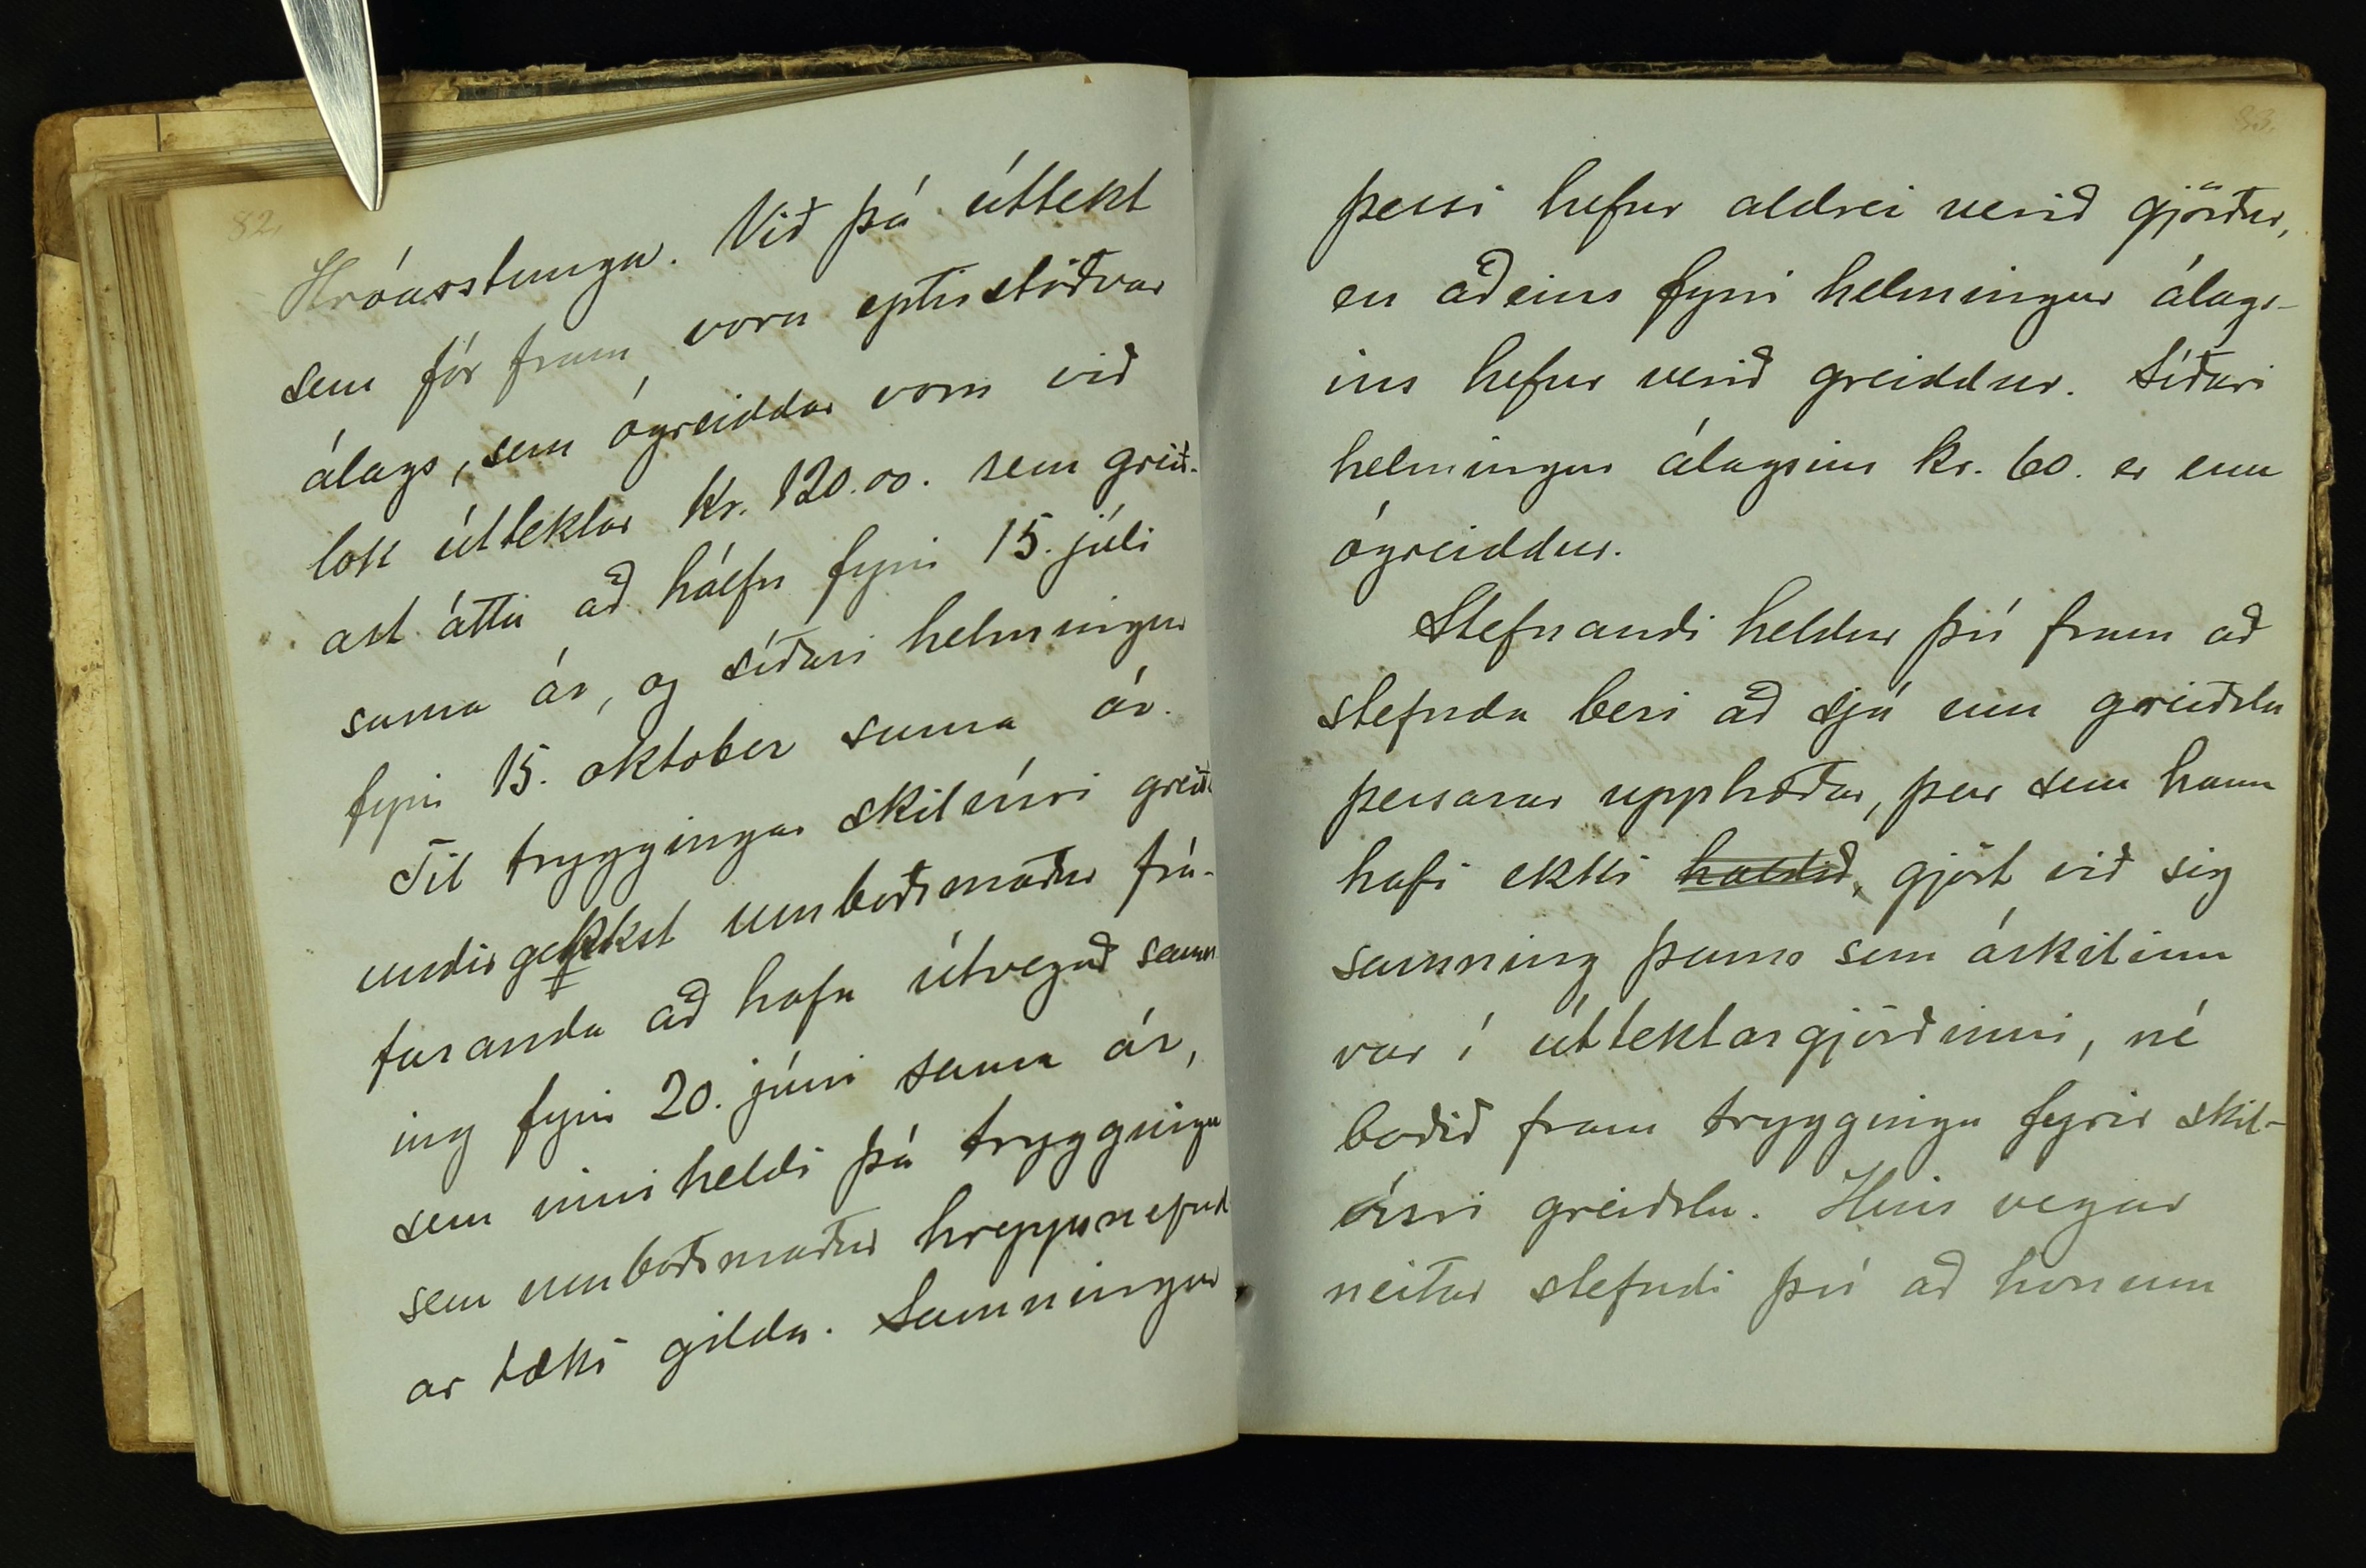 82.
Hróarstunga. Við þá úttekt
sem fór fram voru eptirstöðvar
álags, sem ógreiddar voru við
lok úttektar kr. 120.00. sem greið-
ast áttu að hálfu fyrir 15. júli
sama ár, og síðari helmingur
fyrir 15. oktober sama ár.
Til tryggingar skilvísri greiðslu
undirgekkst umboðsmaður frá-
faranda að hafa útvegað samn-
ing fyrir 20. júni sama ár,
sem inniheldi þá tryggingu
sem umboðsmaður hreppsnefnd
ar tæki gilda. Samningur
83.
þessi hefur aldrei verið gjörður,
en aðeins fyrri helmingur álags-
ins hefur verið greiddur. Síðari
helmingur álagsins kr. 60. er enn
ógreiddur.
Stefnandi heldur því fram að
stefnda beri að sjá um greiðslu
þessarar upphæðar, þar sem hann
hafi ekki haldið, gjört við sig
samning þann sem áskilinn
var í úttektargjörðinni, né
boðið fram tryggingu fyrir skil-
vísri greiðslu. Hins vegar
neitar stefndi því að honum